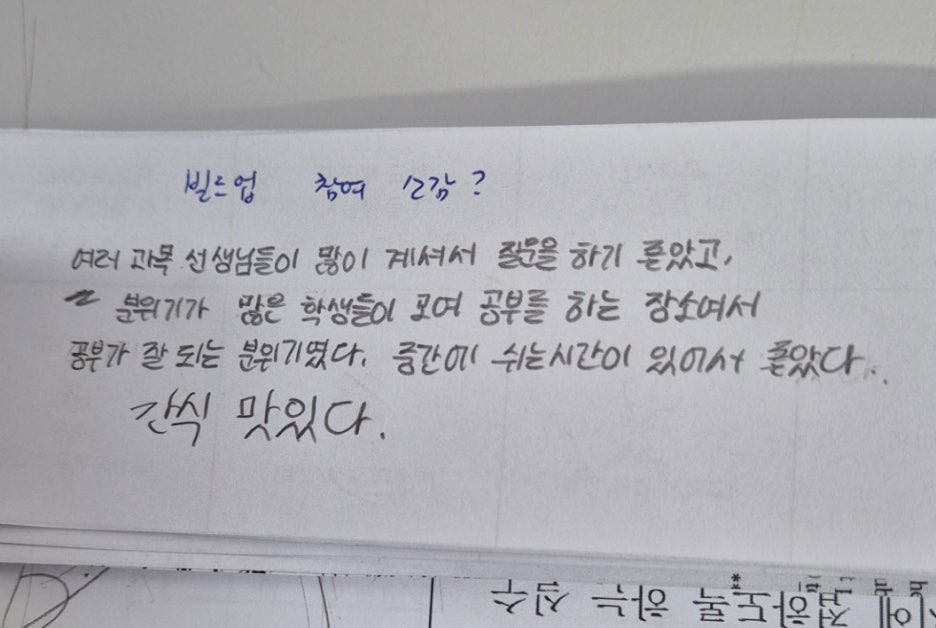 빌드업 참여 소감?
여러 과목 선생님들이 많이 계셔서 질문을 하기 좋았고,
분위기가 많은 학생들이 모여 공부를 하는 장소여서
공부가 잘 되는 분위기였다. 중간에 쉬는시간이 있어서 좋았다..
간식 맛있다.